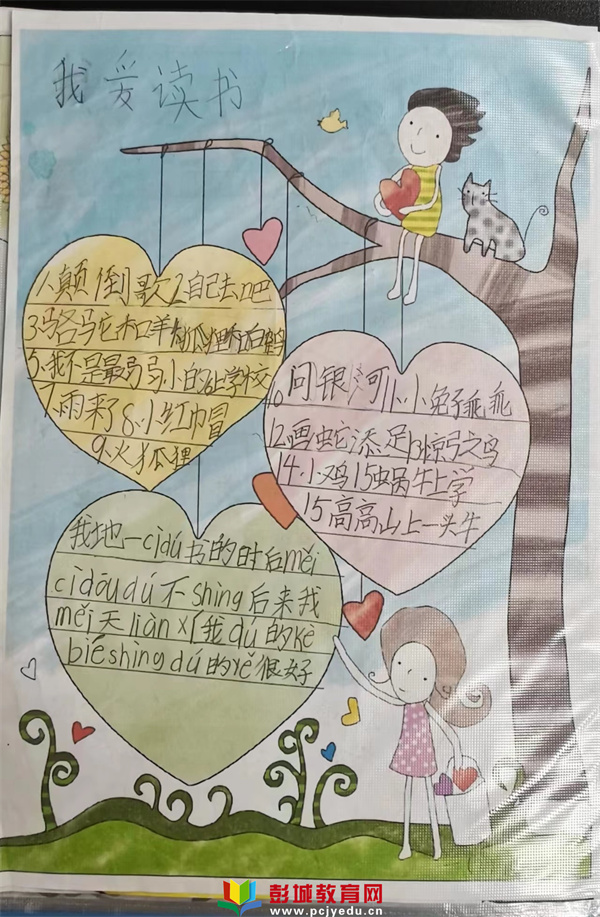 我爱读书
1.颠倒歌2自己去吧
3.骆马它和羊4狐狸和白鹤
5.我不是最弱小的6上学校
7.雨来了8.小红巾冒
9.火狐狸
10问银河11.小兔子乖乖
12.画蛇添足13惊弓之鸟
14.小鸡15蜗牛上学
15高高山上一头牛
我地一cìdú书的时后měi
cìdōudú不shìng后来我
měi天liànxí我dú的kè
biěshìngdú的yě很好
彭城教育网
www.pcjyedu.cn